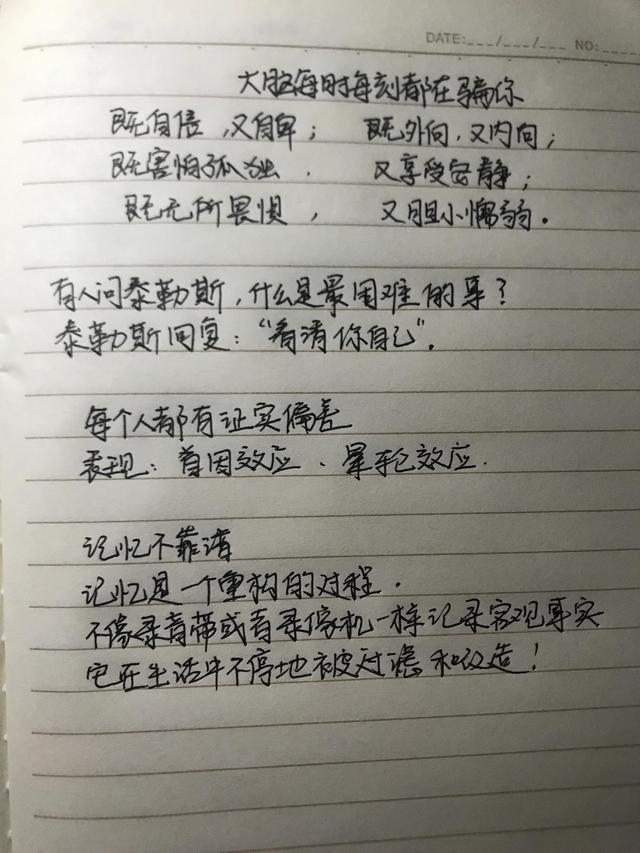 DATE:___/___/___ NO:____
大脑每时每刻都在骗你
既自信，又自卑； 既外向，又内向；
既害怕孤独， 又享受安静；
既无所畏惧， 又胆小懦弱。
有人问泰勒斯，什么是最困难的事？
泰勒斯回复：“看清你自己”。
每个人都有证实偏差
表现：首因效应、晕轮效应.
记忆不靠谱
记忆是一个重构的过程.
不像录音带或者录像机一样记录客观事实
它在生活中不停地被过滤和改造！